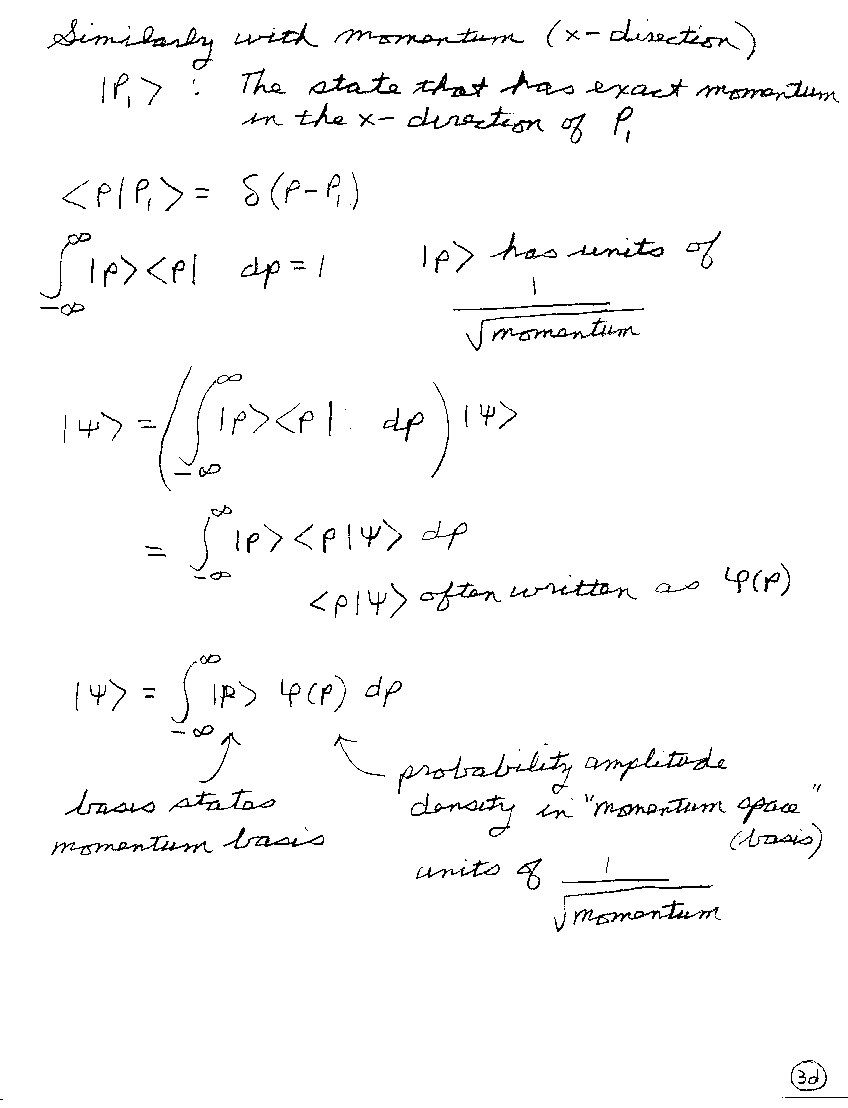 Similarly with momentum (x-direction)
|P₁> : The state that has exact momentum
in the x-direction of P₁
<p|P₁> = δ(p-P₁)
∫_{-∞}^{∞} |p><p| dp = 1    |p> has units of
1/√momentum
|Ψ> = (∫_{-∞}^{∞} |p><p| dp) |Ψ>
= ∫_{-∞}^{∞} |p><p|Ψ> dp
<p|Ψ> often written as φ(p)
|Ψ> = ∫_{-∞}^{∞} |p> φ(p) dp
probability amplitude
basis states    density in "momentum space"
momentum basis    (basis)
units of 1/√momentum
3d